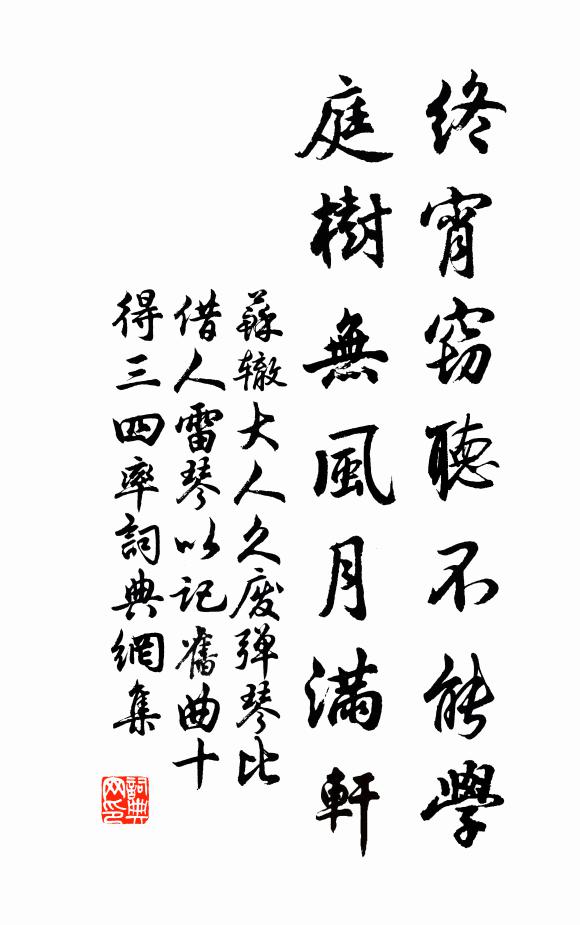 終宵窈聽不能學
庭樹無風月滿軒
蘇辙大人久廢彈琴比
借人雷琴以記舊曲十
得三四率詞典網集
詞典
网印